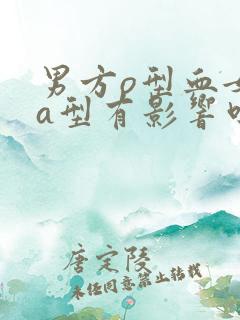 男方o型血女
a型有影響
唐定陵
未经同意禁止转载